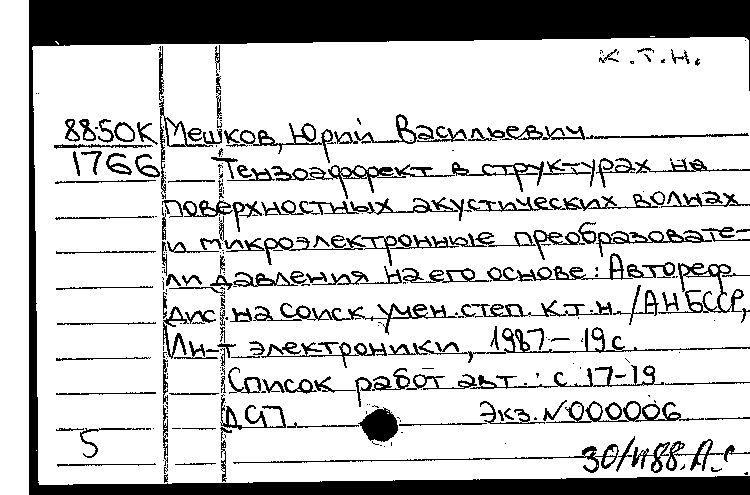 к.т.н.
88-50К Мешков, Юрий Васильевич
1766 Тензоэффект в структурах на
поверхностных акустических волнах
и микроэлектронные преобразовате-
ли давления на его основе: Автореф.
дис. на соиск. учен. степ. к.т.н. /АН БССР,
Ин-т электроники, 1987.- 19 с.
Список работ авт.: с. 17-19.
ДСП. Экз. N000006
5